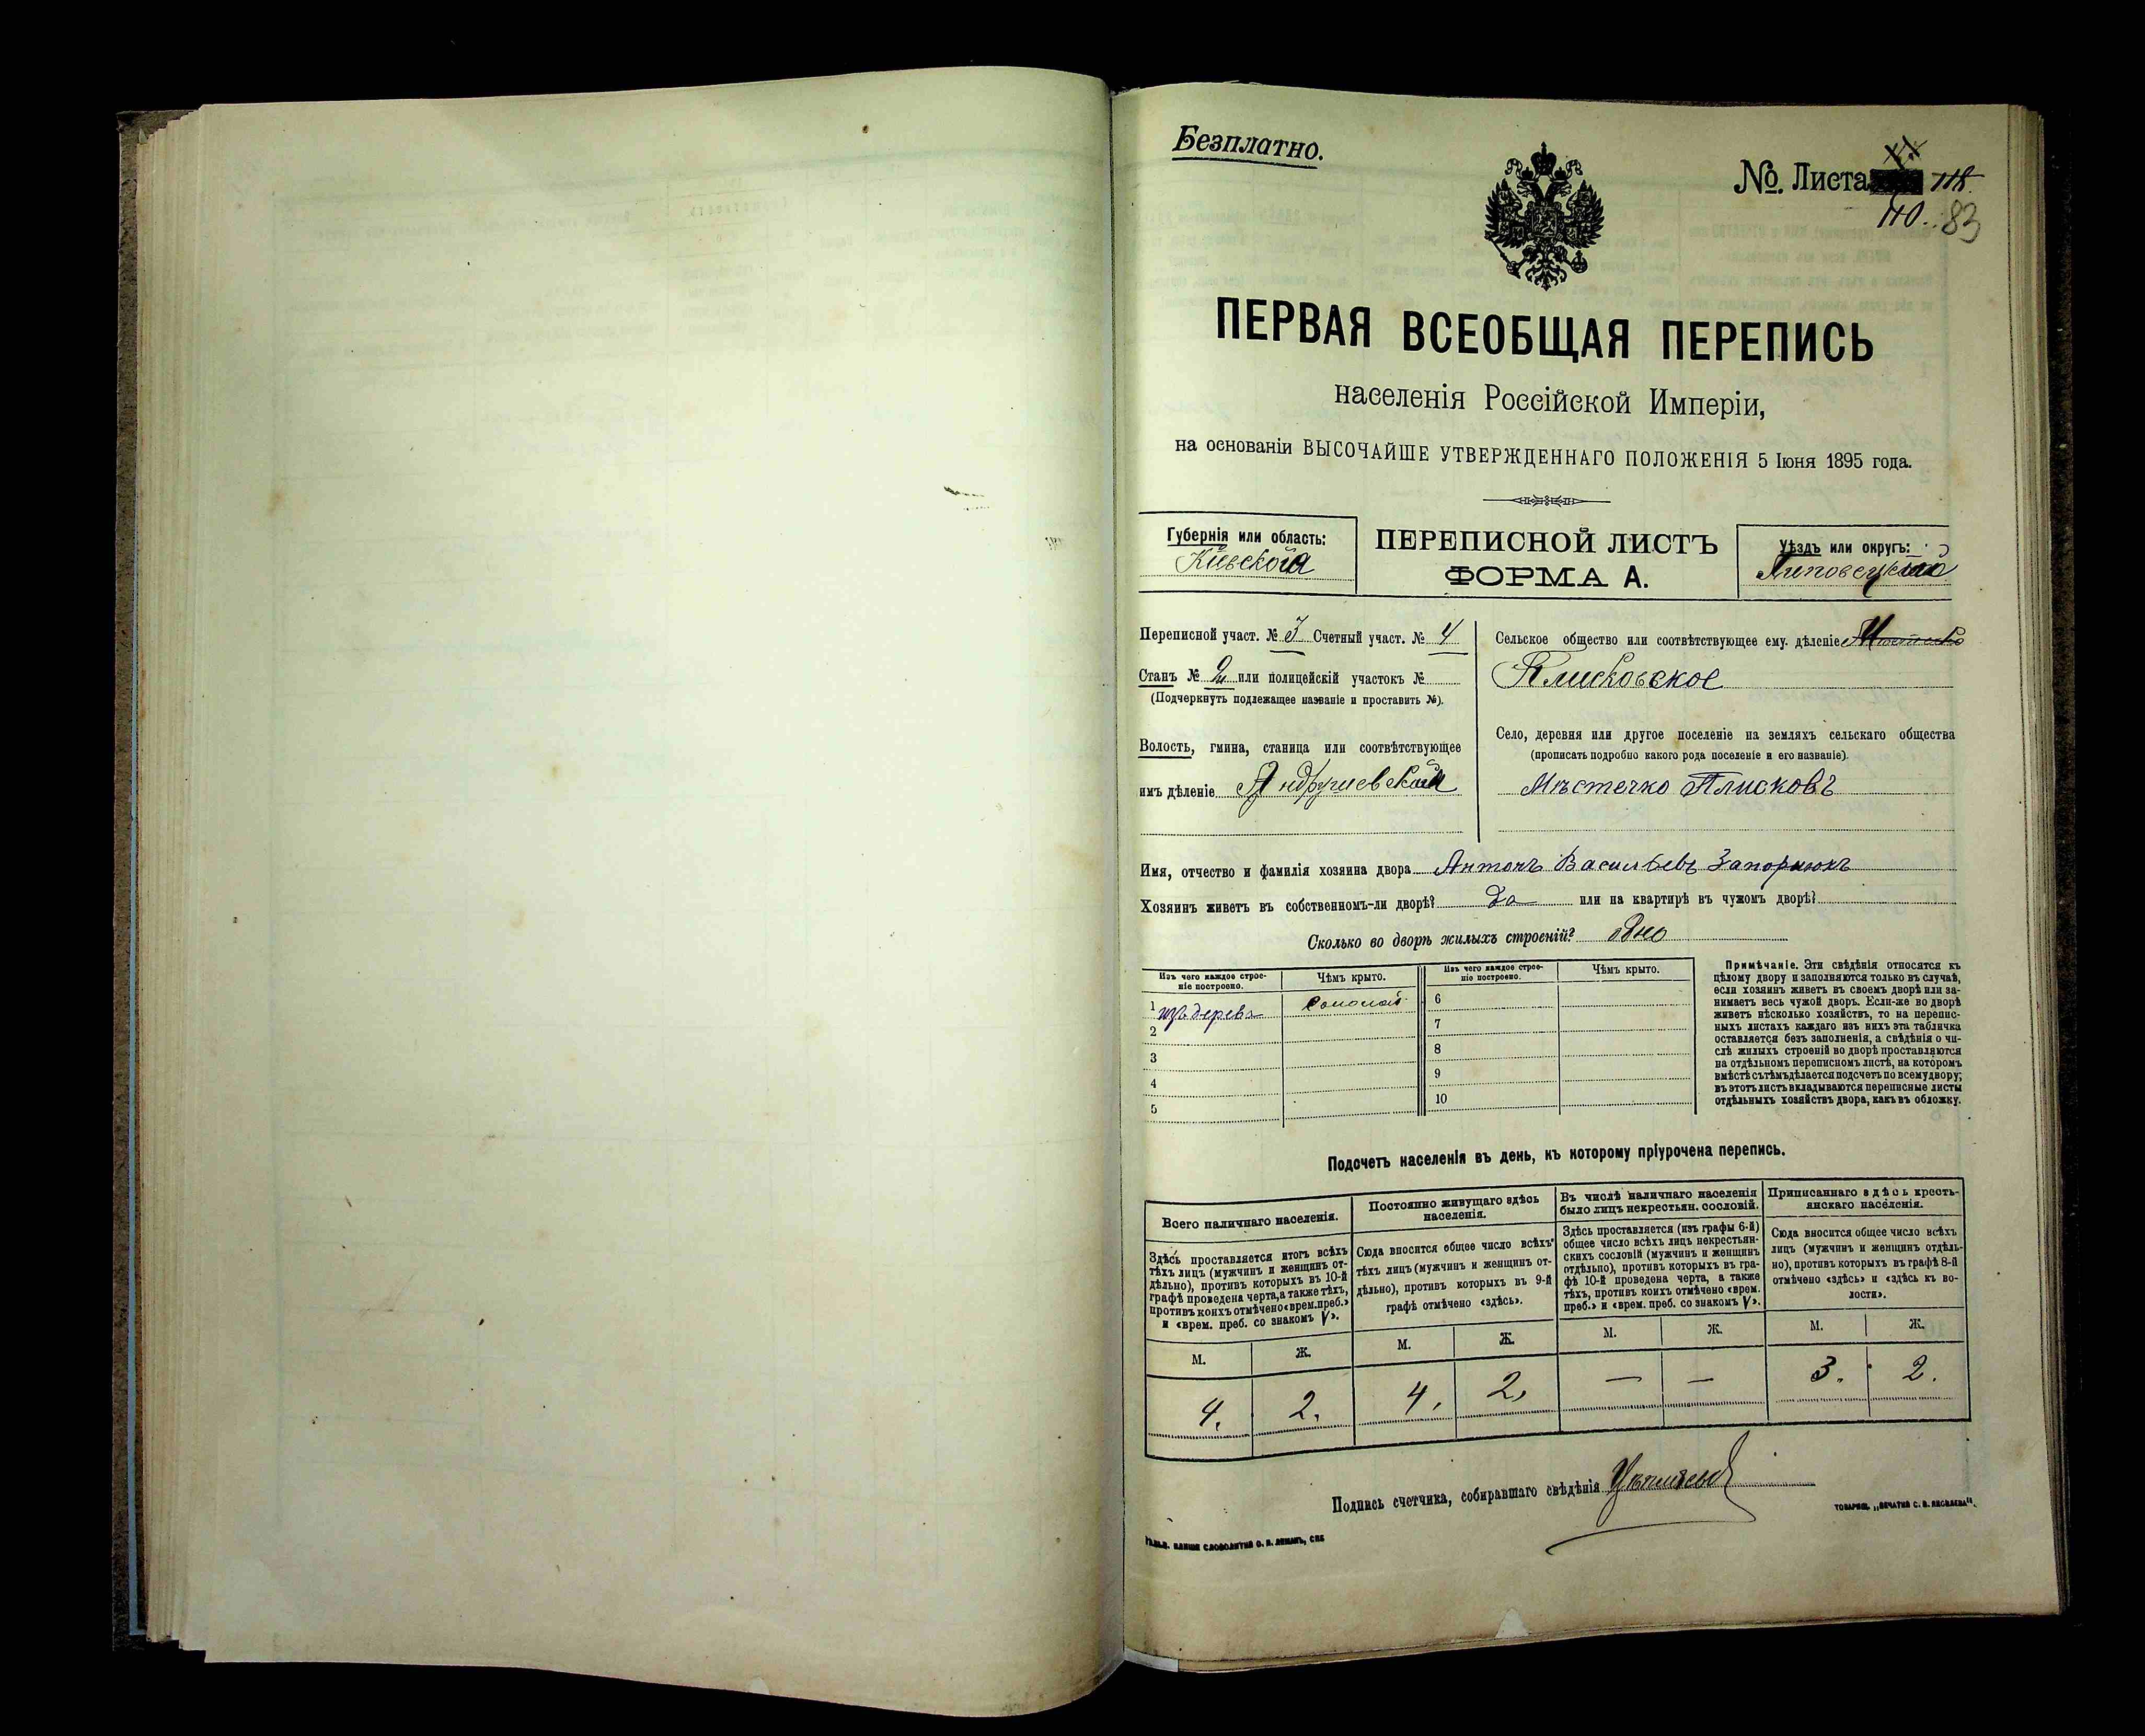 Безплатно.
№. Листа 118.
110. 83
ПЕРВАЯ ВСЕОБЩАЯ ПЕРЕПИСЬ
населенія Россійской Имперіи,
на основаніи ВЫСОЧАЙШЕ УТВЕРЖДЕННАГО ПОЛОЖЕНІЯ 5 Іюня 1895 года.
Губернія или область:
Кіевская
ПЕРЕПИСНОЙ ЛИСТЪ
ФОРМА А.
Уѣздъ или округъ:
Липовецкій
Переписной участ. № 3 Счетный участ. № 4
Станъ № 2 или полицейскій участокъ №
(Подчеркнуть подлежащее названіе и проставить №).
Волость, гмина, станица или соотвѣтствующее
имъ дѣленіе
Сельское общество или соотвѣтствующее ему. дѣленіе
Плисковское
Село, деревня или другое поселеніе на земляхъ сельскаго общества
(прописать подробно какого рода поселеніе и его названіе).
Мѣстечко Плисковъ
Имя, отчество и фамилія хозяина двора Антонъ Васильевъ Запорнюкъ
Хозяинъ живетъ въ собственномъ-ли дворѣ? Да или на квартирѣ въ чужомъ дворѣ?
Сколько во дворѣ жилыхъ строеній? Одно
Изъ чего каждое строе-
ніе построено.
Чѣмъ крыто.
Изъ чего каждое строе-
ніе построено.
Чѣмъ крыто.
1 изъ дерева соломой 6
2 7
3 8
4 9
5 10
Примѣчаніе. Эти свѣдѣнія относятся къ
цѣлому двору и заполняются только въ случаѣ,
если хозяинъ живетъ въ своемъ дворѣ или за-
нимаетъ весь чужой дворъ. Если-же во дворѣ
живетъ нѣсколько хозяйствъ, то на перепис-
ныхъ листахъ каждаго изъ нихъ эта табличка
оставляется безъ заполненія, а свѣдѣнія о чи-
слѣ жилыхъ строеній во дворѣ проставляются
на отдѣльномъ переписномъ листѣ, на которомъ
вмѣстѣ съ тѣмъ дѣлается подсчетъ по всему двору;
въ этотъ листъ вкладываются переписные листы
отдѣльныхъ хозяйствъ двора, какъ въ обложку.
Подсчетъ населенія въ день, къ которому пріурочена перепись.
Всего наличнаго населенія.
Здѣсь проставляется итогъ всѣхъ
тѣхъ лицъ (мужчинъ и женщинъ от-
дѣльно), противъ которыхъ въ 10-й
графѣ проведена черта, а также тѣхъ,
противъ коихъ отмѣчено «врем. преб.»
и «врем. преб. со знакомъ V».
Постоянно живущаго здѣсь
населенія.
Сюда вносится общее число всѣхъ
тѣхъ лицъ (мужчинъ и женщинъ от-
дѣльно), противъ которыхъ въ 9-й
графѣ отмѣчено «здѣсь».
Въ числѣ наличнаго населенія
было лицъ некрестьян. сословій.
Здѣсь проставляется (изъ графы 6-й)
общее число всѣхъ лицъ некрестьян-
скихъ сословій (мужчинъ и женщинъ
отдѣльно), противъ которыхъ въ гра-
фѣ 10-й проведена черта, а также
тѣхъ, противъ коихъ отмѣчено «врем.
преб.» и «врем. преб. со знакомъ V».
Приписаннаго здѣсь кресть-
янскаго населенія.
Сюда вносится общее число всѣхъ
лицъ (мужчинъ и женщинъ отдѣль-
но), противъ которыхъ въ графѣ 8-й
отмѣчено «здѣсь» и «здѣсь къ во-
лости».
М. Ж. М. Ж. М. Ж. М. Ж.
4. 2. 4. 2. — — 3. 2.
Подпись счетчика, собиравшаго свѣдѣнія